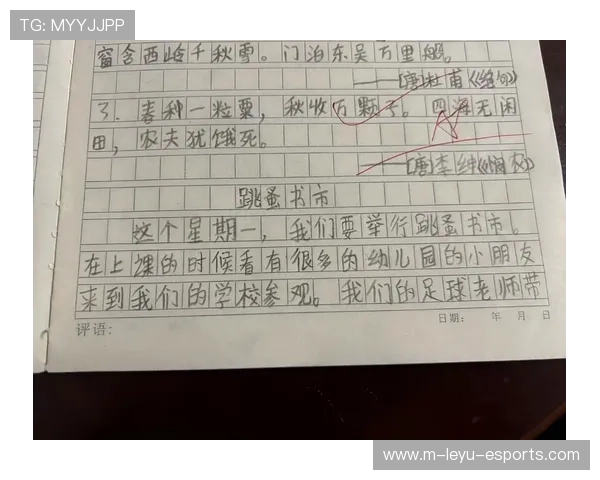 TG: MYYJJPP
窗含西岭千秋雪。门泊东吴万里船。
——[唐]杜甫《绝句》
3. 春种一粒粟，秋收万颗子。四海无闲
田，农夫犹饿死。
——[唐]李绅《悯农》
跳蚤书市
这个星期一，我们要举行跳蚤书市。
在上课的时候看有很多的幼儿园的小朋友
来到我们的学校参观。我们的足球老师带
评语：
日期： 年 月 日
www.m-leyu-esports.com